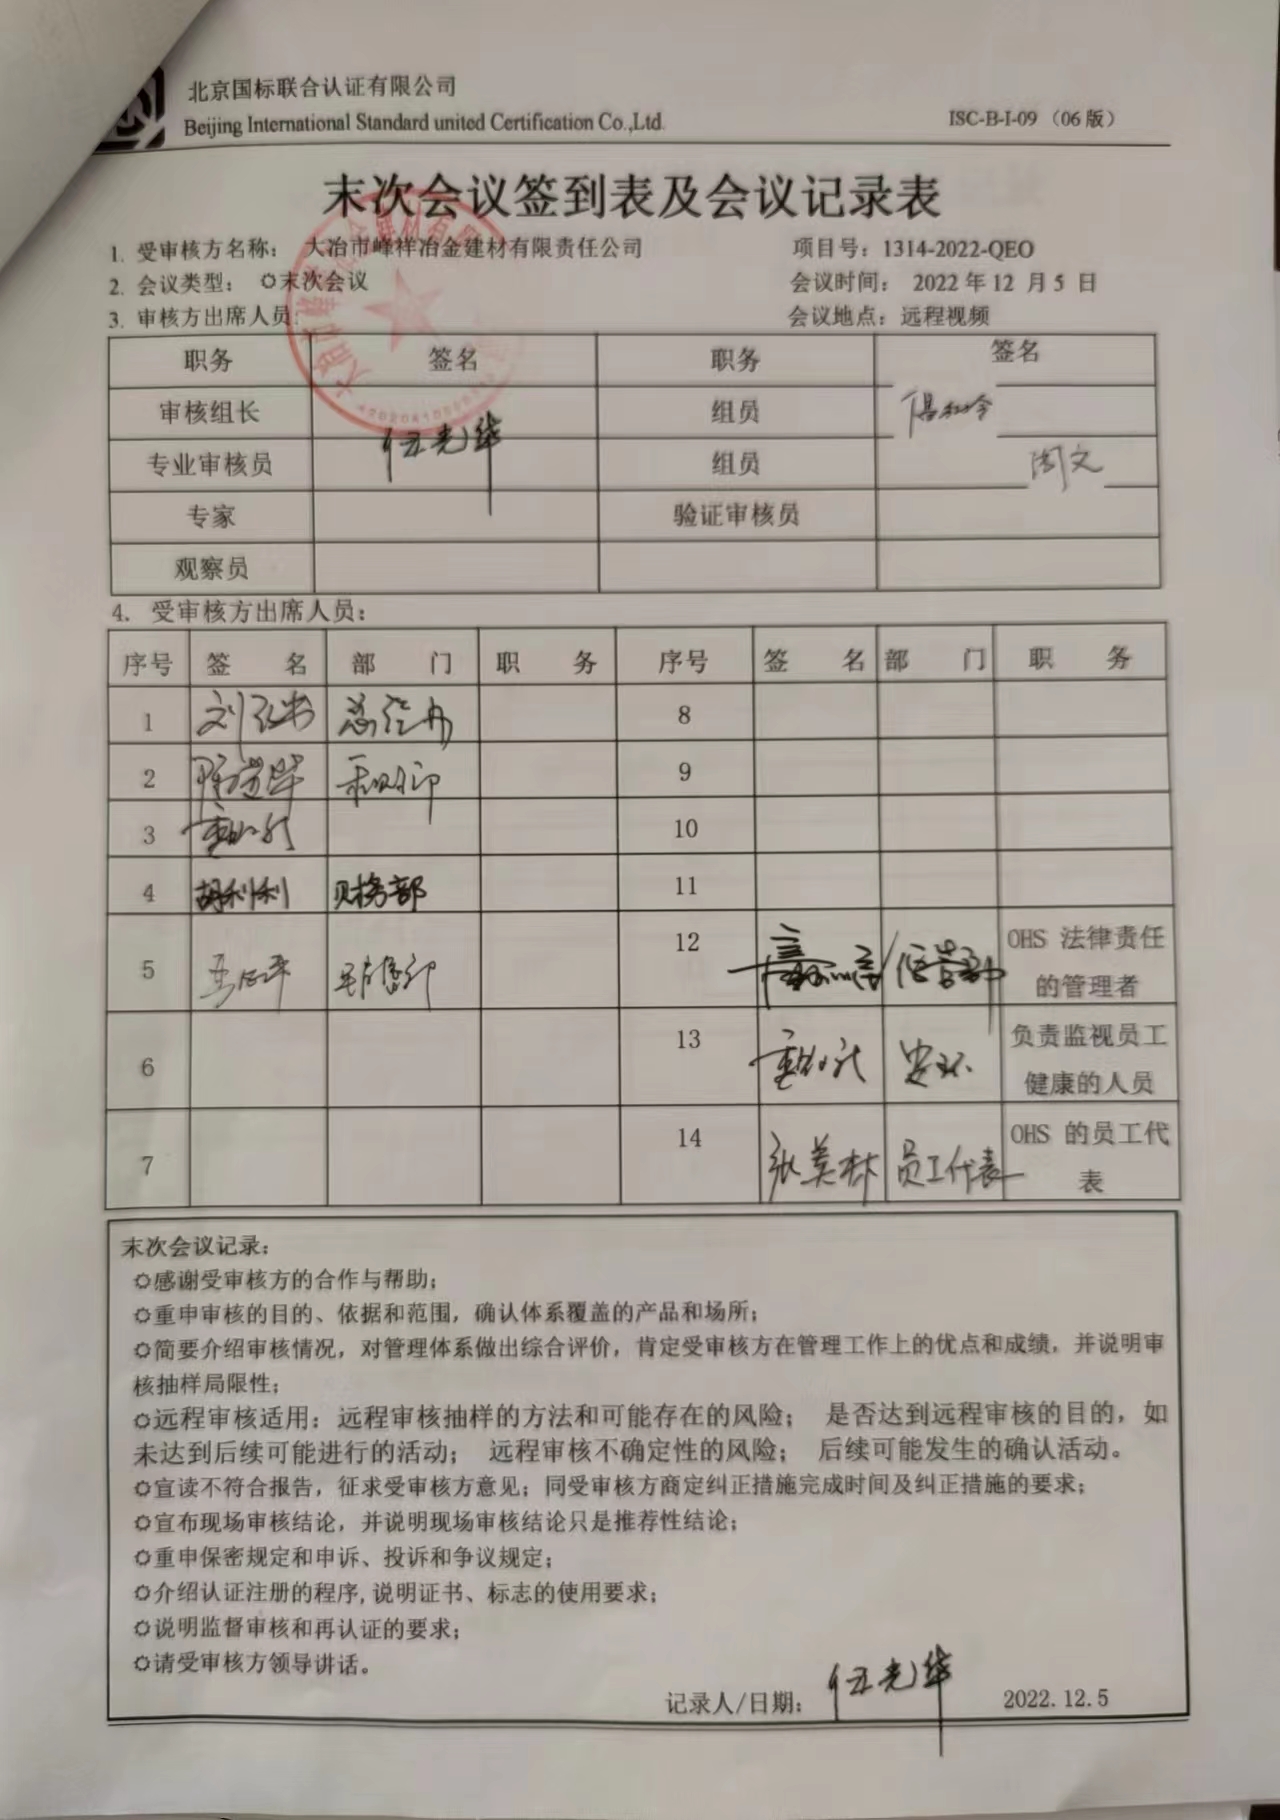 北京国标联合认证有限公司
Beijing International Standard united Certification Co.,Ltd.
ISC-B-I-09 （06 版）
末次会议签到表及会议记录表
1. 受审核方名称： 大冶市峰祥冶金建材有限责任公司 项目号：1314-2022-QEO
2. 会议类型： ✿末次会议 会议时间： 2022 年 12 月 5 日
3. 审核方出席人员： 会议地点：远程视频
职务 签名 职务 签名
审核组长 伍光华 组员
专业审核员 组员 周文
专家 验证审核员
观察员
4. 受审核方出席人员：
序号 签 名 部 门 职 务 序号 签 名 部 门 职 务
1 总经办 8
2 9
3 10
4 胡利利 财务部 11
5 12 OHS 法律责任
的管理者
6 13 安环 负责监视员工
健康的人员
7 14 张美林 员工代表 OHS 的员工代
表
末次会议记录：
✿感谢受审核方的合作与帮助；
✿重申审核的目的、依据和范围，确认体系覆盖的产品和场所；
✿简要介绍审核情况，对管理体系做出综合评价，肯定受审核方在管理工作上的优点和成绩，并说明审
核抽样局限性；
✿远程审核适用：远程审核抽样的方法和可能存在的风险； 是否达到远程审核的目的，如
未达到后续可能进行的活动； 远程审核不确定性的风险； 后续可能发生的确认活动。
✿宣读不符合报告，征求受审核方意见；同受审核方商定纠正措施完成时间及纠正措施的要求；
✿宣布现场审核结论，并说明现场审核结论只是推荐性结论；
✿重申保密规定和申诉、投诉和争议规定；
✿介绍认证注册的程序,说明证书、标志的使用要求；
✿说明监督审核和再认证的要求；
✿请受审核方领导讲话。
记录人/日期： 伍光华 2022.12.5